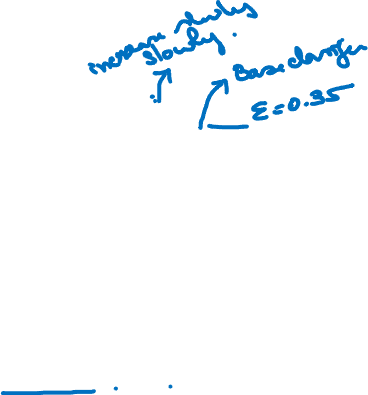 increase slowly
slowly.
Base changes
ε = 0.35